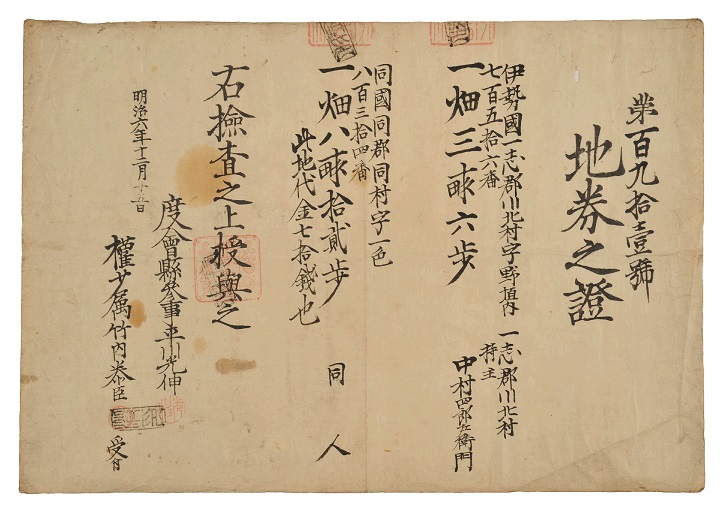 第百九拾壹號
地券之證
伊勢國一志郡川北村字野垣内
七百五拾六番
一畑三畝六歩
一志郡川北村
持主
中村四郎兵衛門
同國同郡同村字一色
八百三拾四番
一畑八畝拾貳歩
此地代金七拾錢也
同人
右撿査之上授與之
明治六年十二月十五日
度會縣參事平川光伸
權少属竹内泰臣